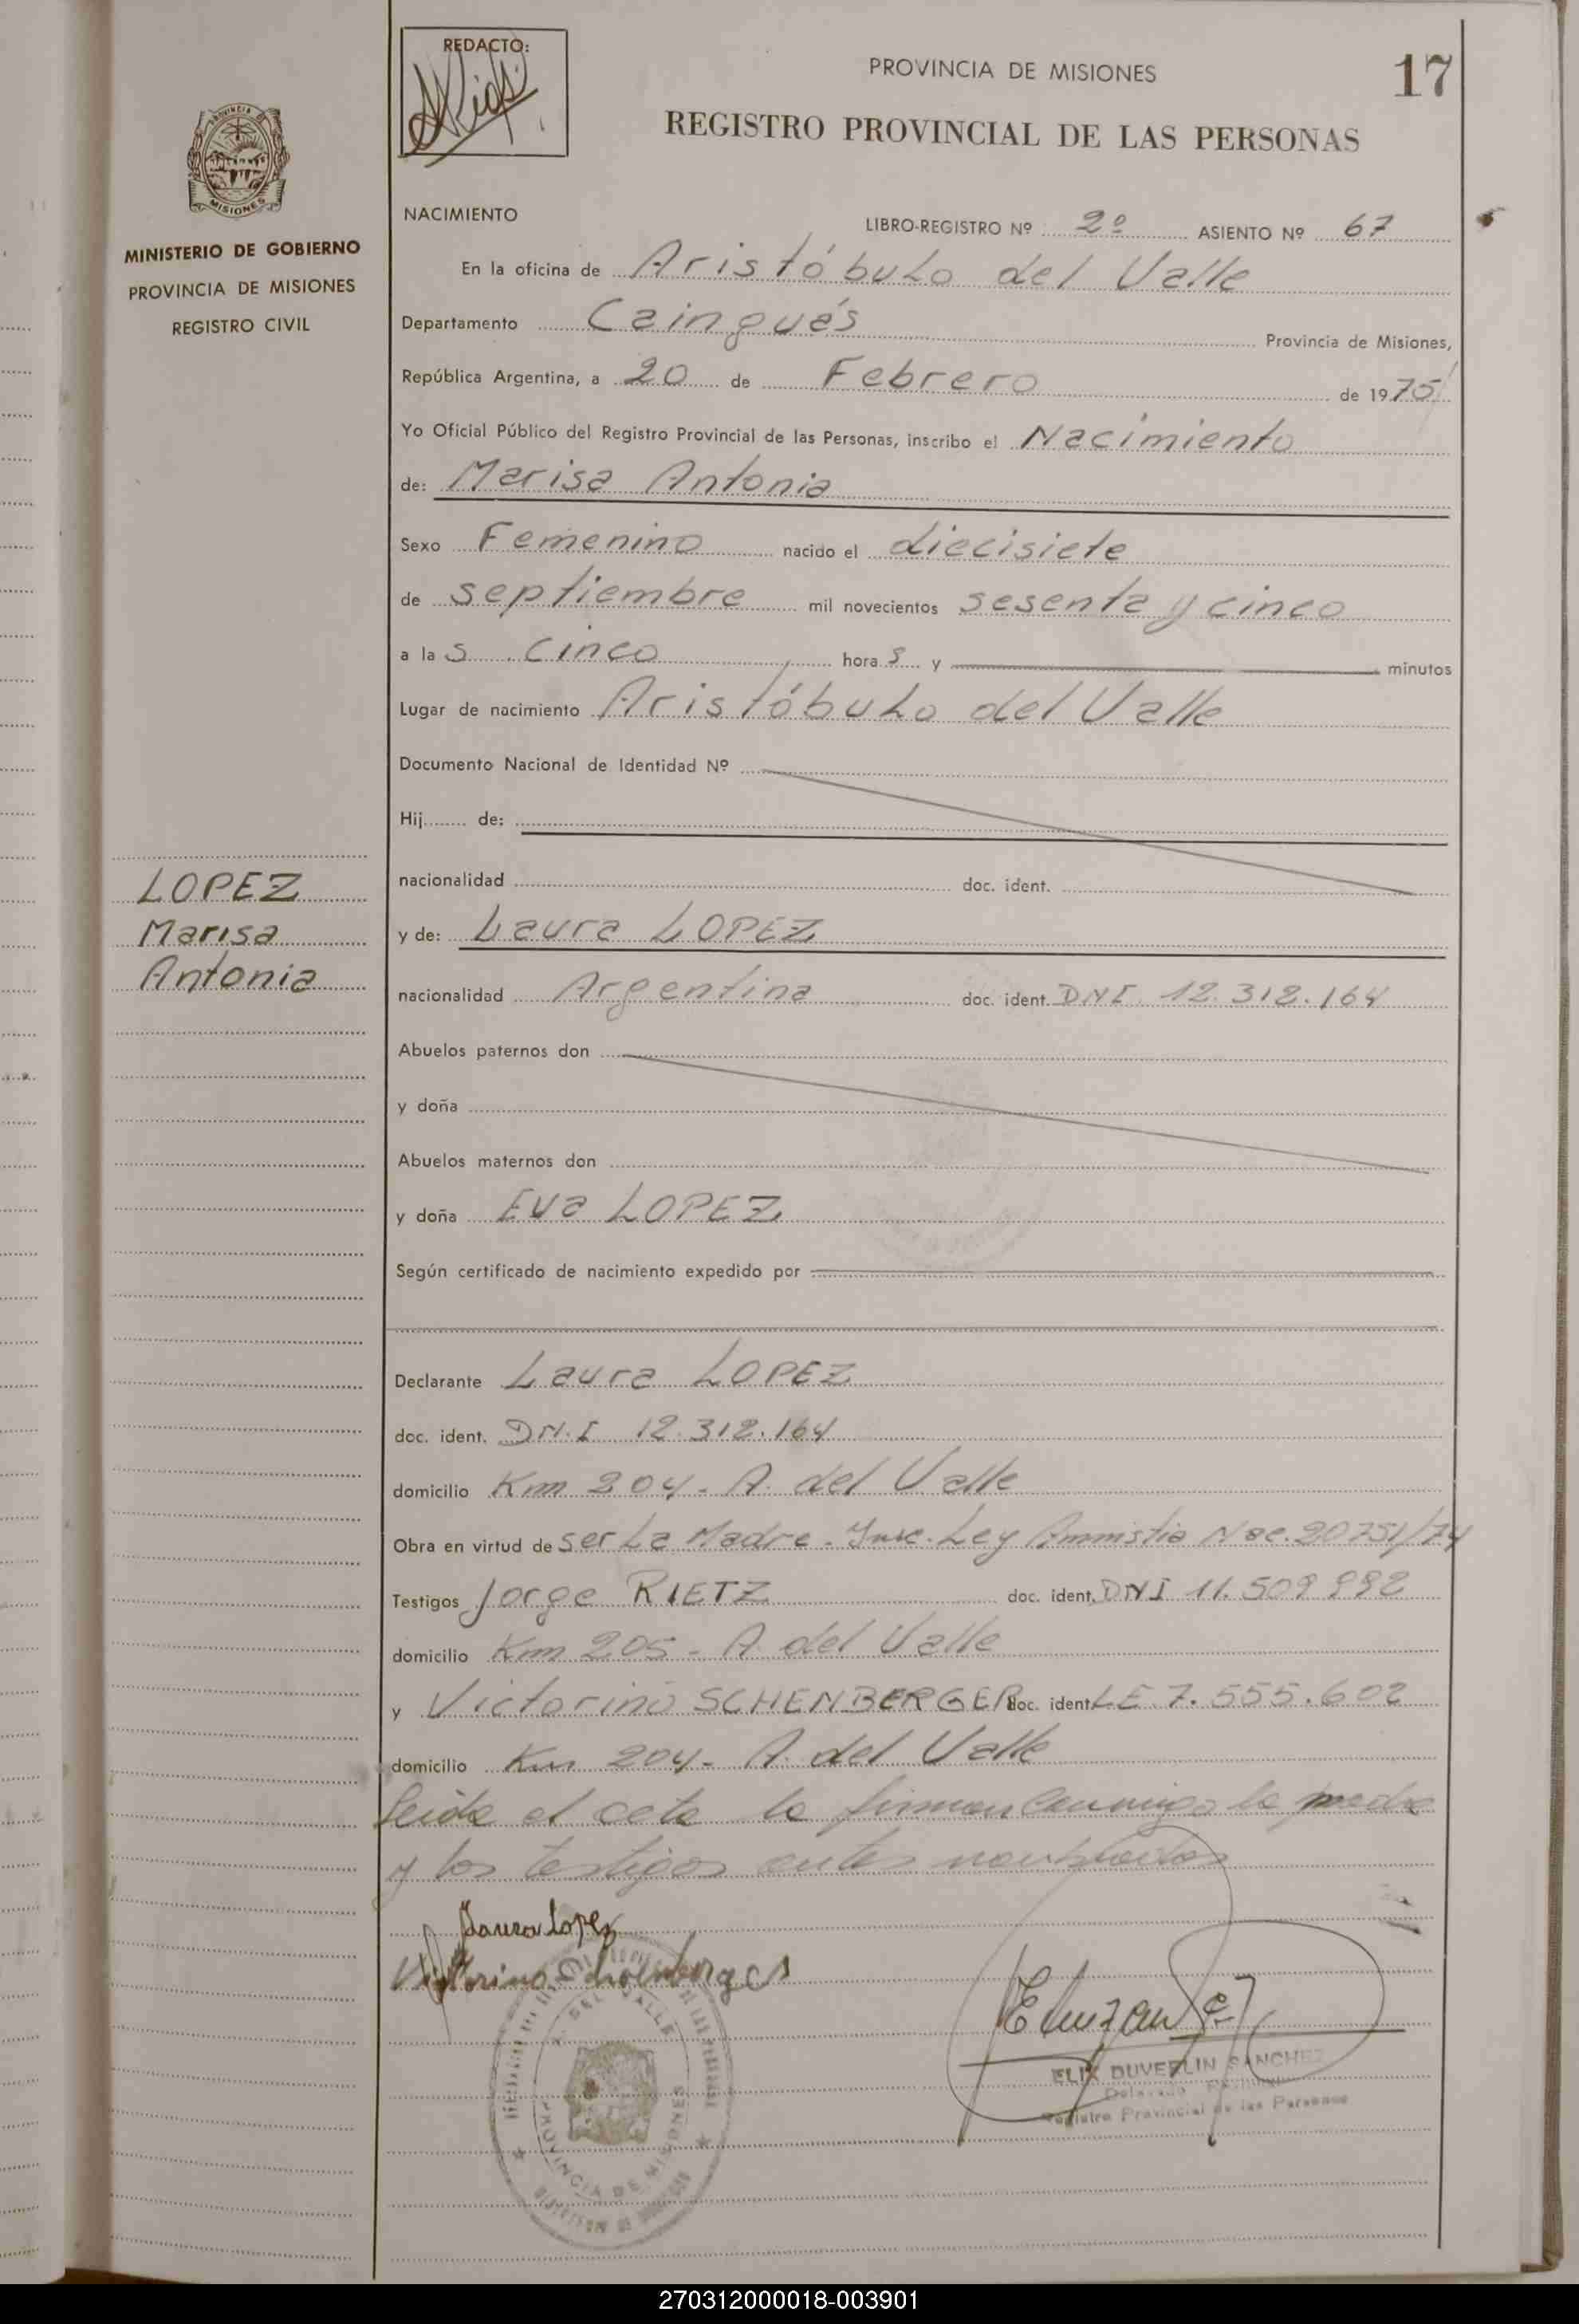 REDACTO:
PROVINCIA DE MISIONES
17
REGISTRO PROVINCIAL DE LAS PERSONAS
PROVINCIA DE
MISIONES
MINISTERIO DE GOBIERNO
PROVINCIA DE MISIONES
REGISTRO CIVIL
NACIMIENTO
LIBRO-REGISTRO Nº 2º ASIENTO Nº 67
En la oficina de Aristóbulo del Valle
Departamento Cainguás Provincia de Misiones,
República Argentina, a 20 de Febrero de 1975
Yo Oficial Público del Registro Provincial de las Personas, inscribo el Nacimiento
de: Marisa Antonia
Sexo Femenino nacido el diecisiete
de septiembre mil novecientos sesenta y cinco
a la s cinco hora s y minutos
Lugar de nacimiento Aristóbulo del Valle
Documento Nacional de Identidad Nº
Hij de:
nacionalidad doc. ident.
LOPEZ
Marisa
Antonia
y de: Laura LOPEZ
nacionalidad Argentina doc. ident. DNI 12.312.164
Abuelos paternos don
y doña
Abuelos maternos don
y doña Eva LOPEZ
Según certificado de nacimiento expedido por
Declarante Laura LOPEZ
doc. ident. DN.I 12.312.164
domicilio Km 204 - A. del Valle
Obra en virtud de ser La Madre. Insc. Ley Amnistia Nac. 20751/74
Testigos Jorge RIETZ doc. ident. DNI 11.509
domicilio Km 205 - A. del Valle
y Victorino SCHENBERGER doc. ident. LE 7.555.602
domicilio Km 204 - A. del Valle
Leida el acta la firman conmigo la madre
y los testigos antes nombrados
Laura Lopez
Victorino
A. DEL VALLE
PROVINCIA DE MISIONES
ELIX DUVERLIN SANCHEZ
Registro Provincial de las Personas
270312000018-003901